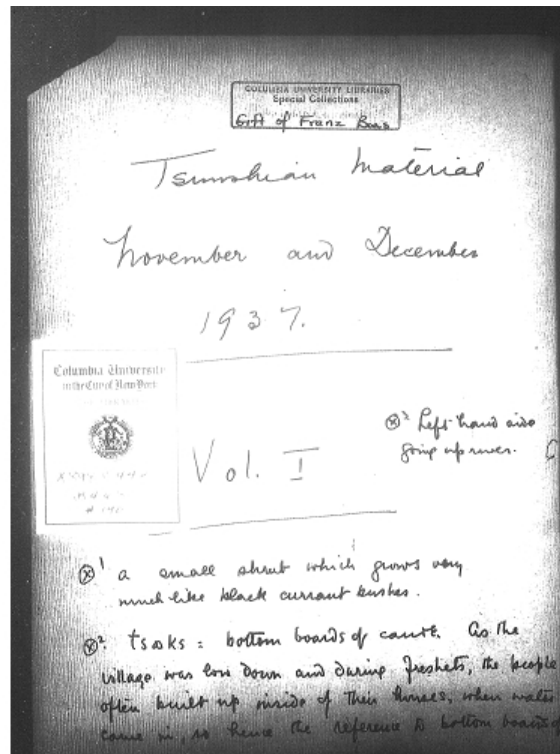 COLUMBIA UNIVERSITY LIBRARIES
Special Collections
Gift of Franz Boas
Tsimshian Material
November and December
1937.
Columbia University
in the City of New York
Vol. I
ⓧ³ Left hand side
going up river.
ⓧ¹ a small shrub which grows very
much like black currant bushes.
ⓧ². = bottom boards of canoe. As the
village was low down and during freshets, the people
often built up inside of their houses, when water
came in, so hence the reference to bottom boards of